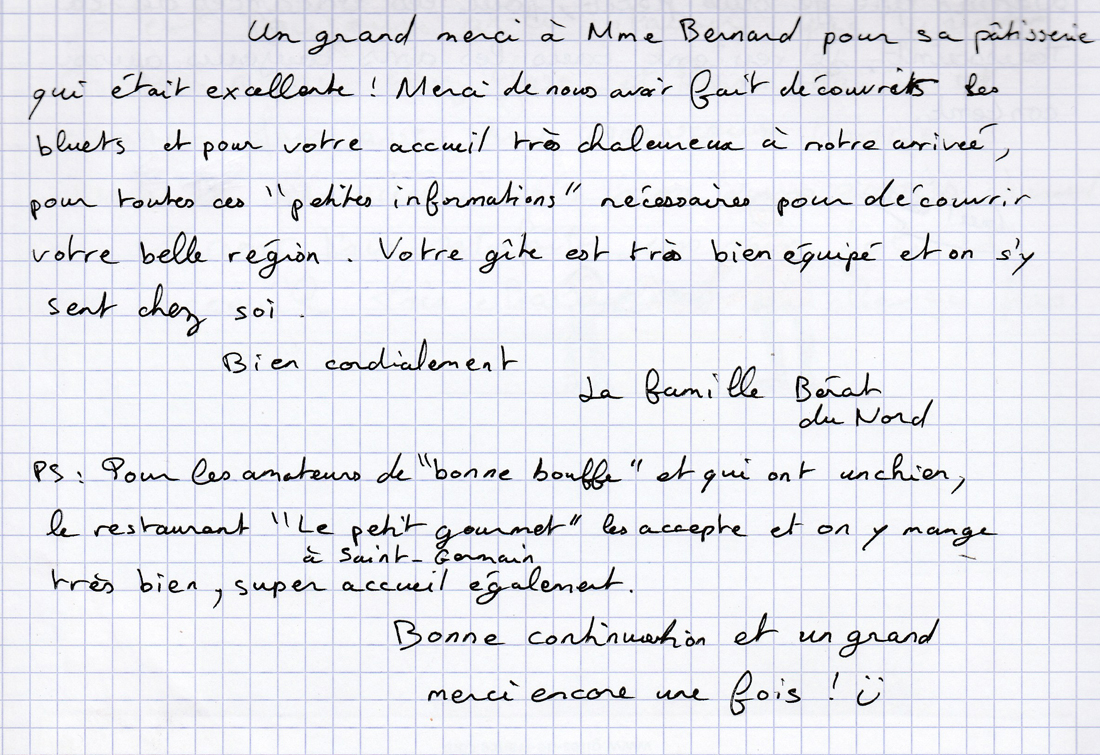 Un grand merci à Mme Bernard pour sa pâtisserie
qui était excellente ! Merci de nous avoir fait découvrir les
bluets et pour votre accueil très chaleureux à notre arrivée,
pour toutes ces "petites informations" nécessaires pour découvrir
votre belle région. Votre gîte est très bien équipé et on s'y
sent chez soi.
Bien cordialement
La famille Bérat
du Nord
PS : Pour les amateurs de "bonne bouffe" et qui ont un chien,
le restaurant "Le petit gourmet" les accepte et on y mange
à Saint-Germain
très bien, super accueil également.
Bonne continuation et un grand
merci encore une fois ! ☺